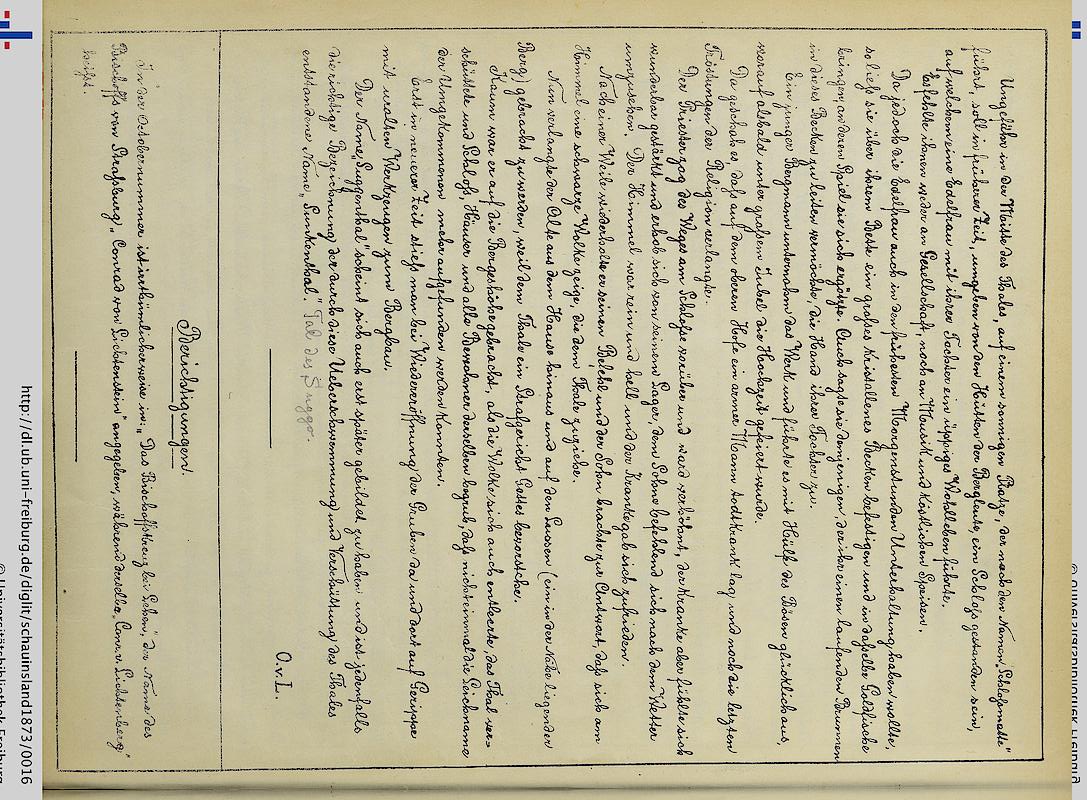 Ungefähr in der Mitte des Thals, auf einem sonnigen Platze, der noch den Namen „Schloßmatte“
führt, soll in früherer Zeit, umgeben von den Hütten der Bergleute, ein Schloß gestanden sein,
auf welchem eine Edelfrau mit ihrer Tochter ein üppiges Wohlleben führte.
Es fehlte ihnen weder an Gesellschaft, noch an Musik und köstlichen Speisen.
Da jedoch die Edelfrau auch in den frühesten Morgenstunden Unterhaltung haben wollte,
so ließ sie über ihrem Bette ein großes kristallenes Becken befestigen und in daßelbe Goldfische
bringen, an deren Spiel sie sich ergötzte. Auch sagte sie demjenigen, der ihr einen laufenden Brunnen
in dieses Becken zu leiten vermöchte, die Hand ihrer Tochter zu.
Ein junger Bergmann unternahm das Werk und führte es mit Hülfe des Bösen glücklich aus,
worauf alsbald unter großem Jubel die Hochzeit gefeiert wurde.
Da geschah es, daß auf dem oberen Hofe ein armer Mann todtkrank lag, und noch die letzten
Tröstungen der Religion verlangte.
Der Priester zog des Weges am Schloße vorüber und ward verhöhnt, der Kranke aber fühlte sich
wunderbar gestärkt und erhob sich von seinem Lager, dem Sohne befehlend sich nach dem Wetter
umzusehen. Der Himmel war rein und hell und der Kranke gab sich zufrieden.
Nach einer Weile wiederholte er seinen Befehl und der Sohn brachte zur Antwort, daß sich am
Himmel eine schwarze Wolke zeige, die dem Thale zuziehe.
Nun verlangte der Alte aus dem Hause hinaus und auf den Luser (ein in der Nähe liegender
Berg) gebracht zu werden, weil dem Thale ein Strafgericht Gottes bevorstehe.
Kaum war er auf die Bergeshöhe gebracht, als die Wolke sich auch entleerte, das Thal ver=
schüttete und Schloß, Häuser und alle Bewohner derselben begrub, daß nicht einmal die Leichname
der Umgekommenen mehr aufgefunden werden konnten.
Erst in neuerer Zeit stieß man bei Wiederöffnung der Gruben da und dort auf Gerippe
mit uralten Werkzeugen zum Bergbau.
Der Name „Suggenthal“ scheint sich auch erst später gebildet zu haben und ist jedenfalls
die richtige Bezeichnung der durch diese Ueberschwemmung und Verschüttung des Thales
entstandene Name „Sunkenthal.“ Tal des Suggo.
O.v.L.
Berichtigungen!
In der Octobernummer ist irrthümlicherweise im: „Das Bischofskreuz bei Lehen,“ der Name des
Bischoffs von Straßburg „Conrad von Liebenstein“ angegeben, während derselbe „Conr. v. Lichtenberg“
heißt.
http://dl.ub.uni-freiburg.de/diglit/schauinsland1873/0016
© Universitätsbibliothek Freiburg